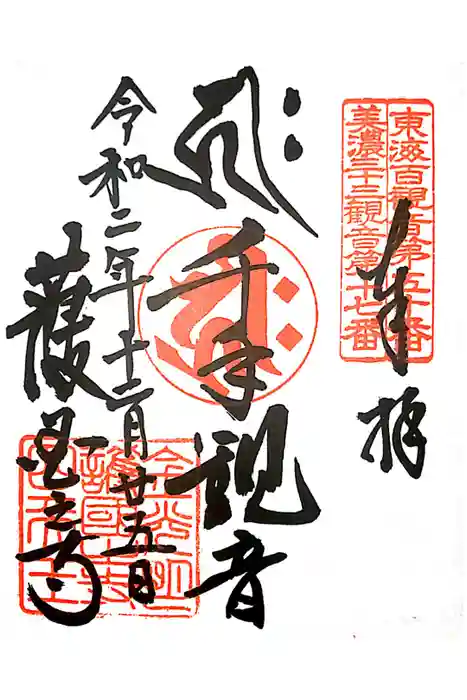 東海百観音第五十番
美濃三十三観音第十七番
奉拝
千手観音
令和二年十二月廿五日
護国之寺